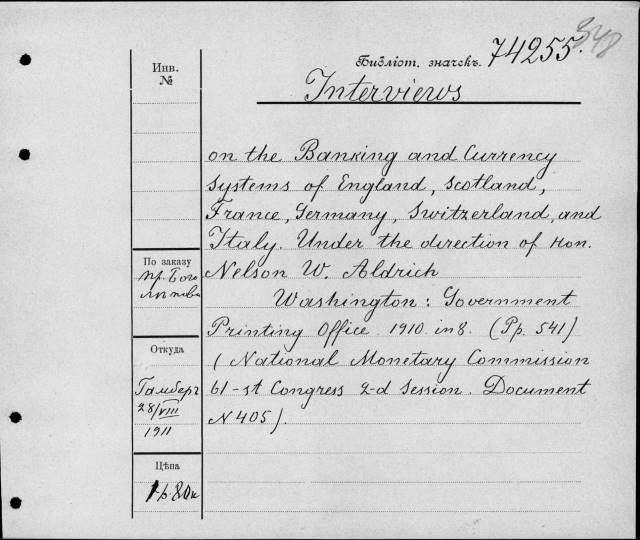 348
Инв.
№
Библіот. значекъ. 74255.
Interviews
on the Banking and Currency
Systems of England, Scotland,
France, Germany, Switzerland, and
Italy. Under the direction of Hon.
Nelson W. Aldrich
Washington: Government
Printing Office 1910 in 8. (Pp. 541)
(National Monetary Commission
61-st Congress 2-d Session. Document
N 405).
По заказу
пр. Бого
лѣпова
Откуда
Гамберг
28/VIII
1911
Цѣна
1 р. 80 к